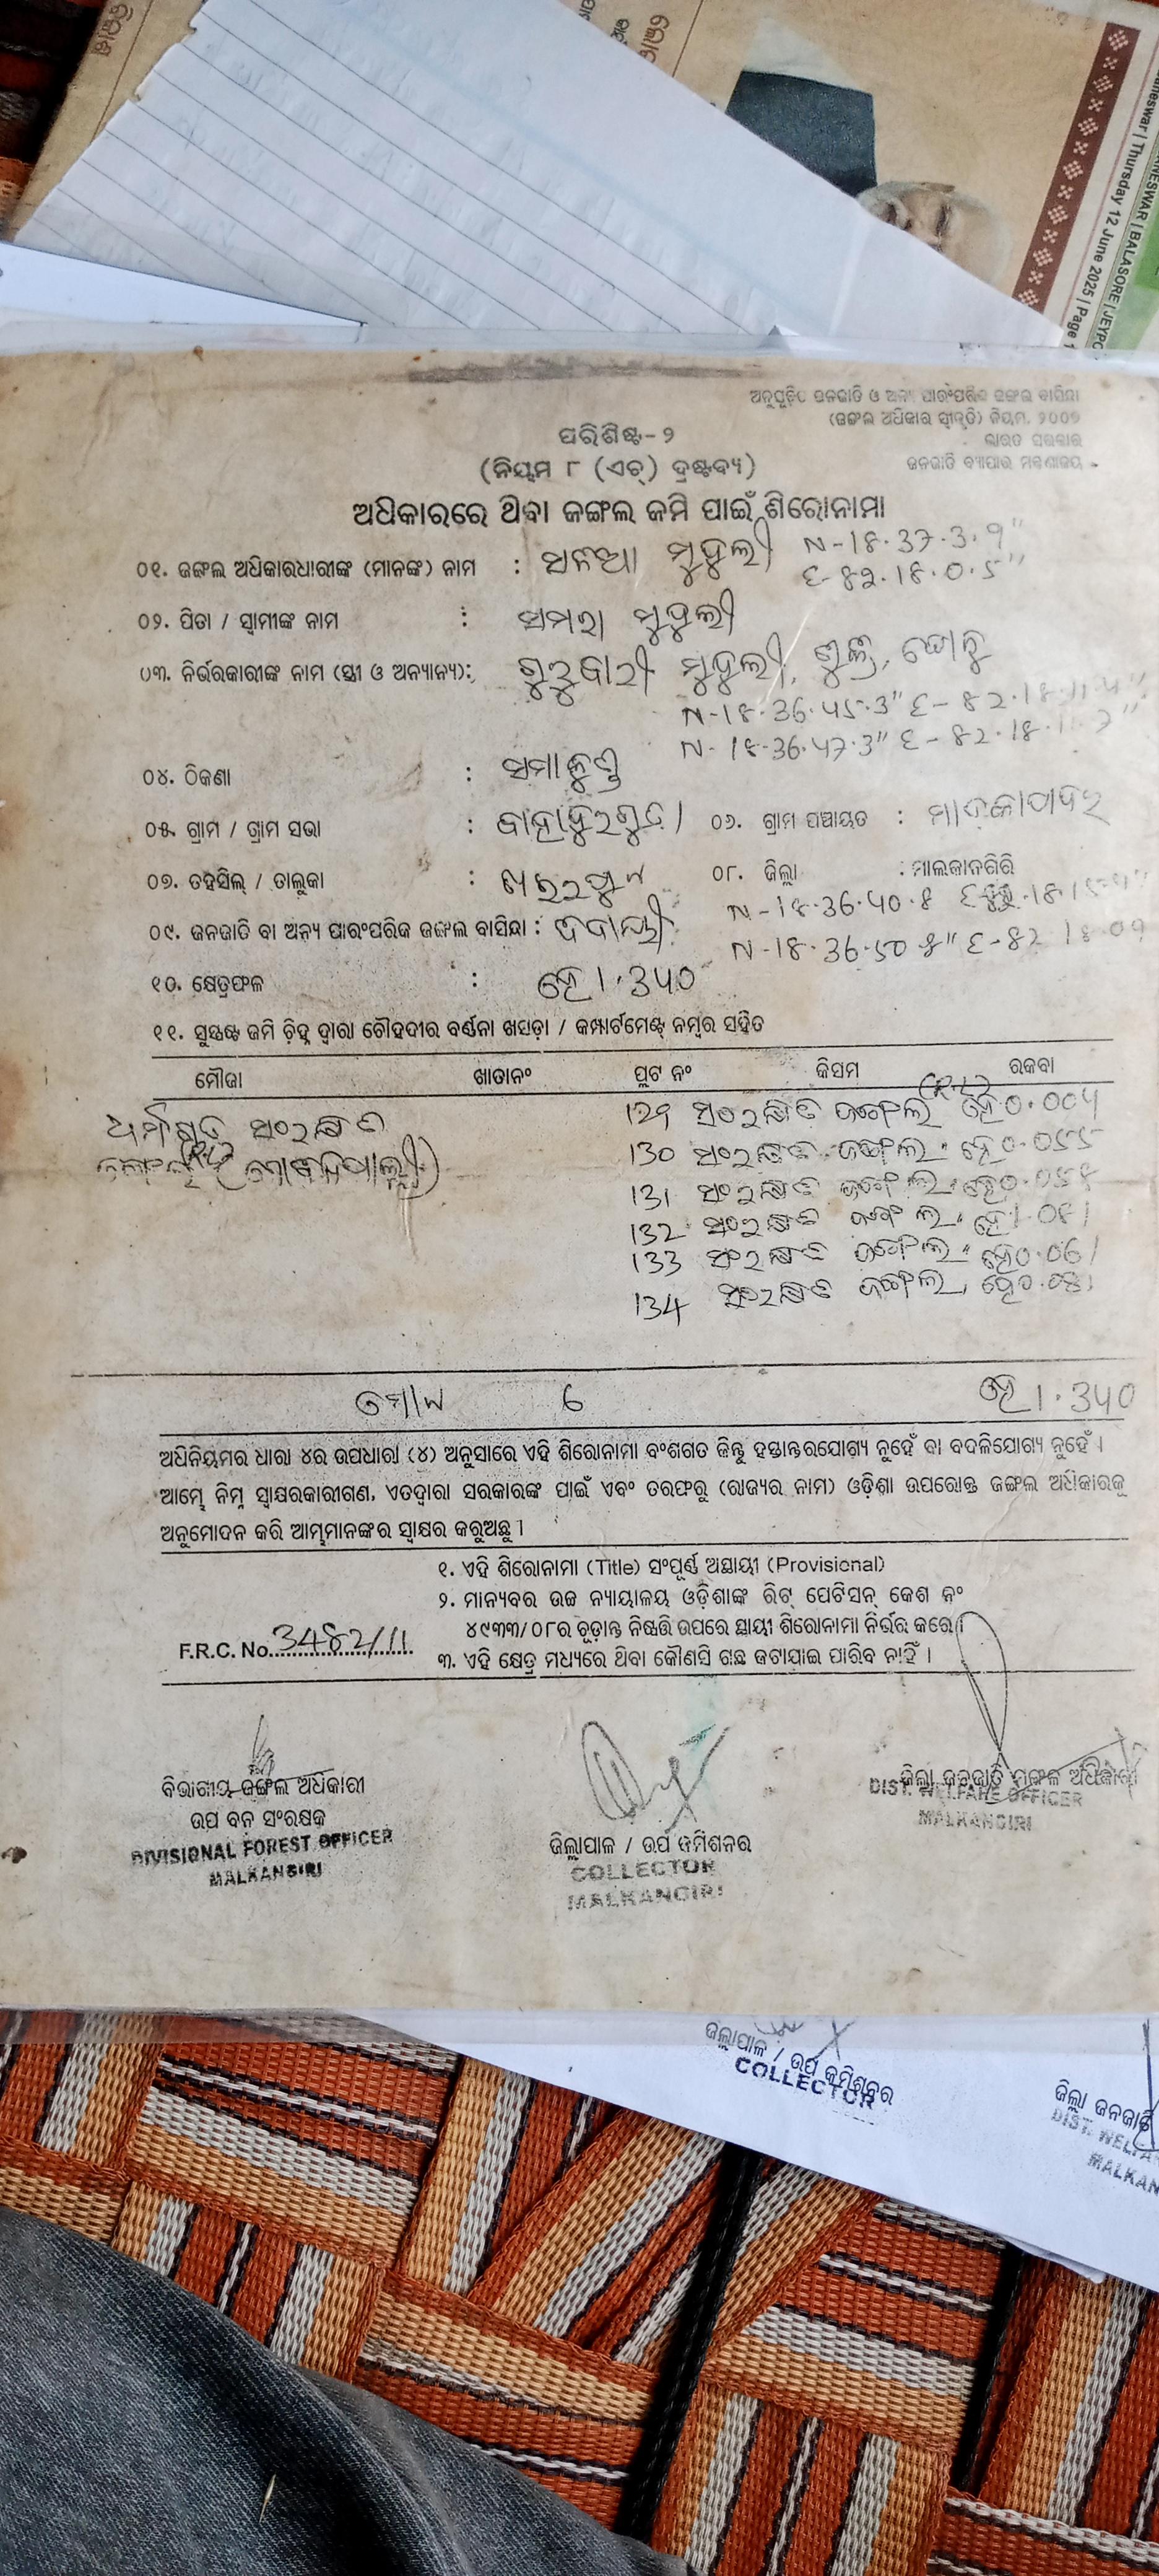 ଅନୁସୂଚିତ ଜନଜାତି ଓ ଅନ୍ୟ ପାରଂପରିକ ଜଙ୍ଗଲ ବାସିନ୍ଦା
(ଜଙ୍ଗଲ ଅଧିକାର ସ୍ୱୀକୃତି) ନିୟମ, ୨୦୦୭
ଭାରତ ସରକାର
ଜନଜାତି ବ୍ୟାପାର ମନ୍ତ୍ରଣାଳୟ
ପରିଶିଷ୍ଟ-୨
(ନିୟମ ୮ (ଏଚ୍) ଦ୍ରଷ୍ଟବ୍ୟ)
ଅଧିକାରରେ ଥିବା ଜଙ୍ଗଲ ଜମି ପାଇଁ ଶିରୋନାମା
୦୧. ଜଙ୍ଗଲ ଅଧିକାରଧାରୀଙ୍କ (ମାନଙ୍କ) ନାମ : ମୁଦୁଲୀ N-18.37.3.9"
E-82.18.0.5"
୦୨. ପିତା / ସ୍ୱାମୀଙ୍କ ନାମ : ସମରା ମୁଦୁଲୀ
୦୩. ନିର୍ଭରକାରୀଙ୍କ ନାମ (ସ୍ତ୍ରୀ ଓ ଅନ୍ୟାନ୍ୟ): ଗୁରୁବାରୀ ମୁଦୁଲୀ,
N-18.36.45.3" E-82.18.11.4"
N-18.36.47.3" E-82.18.11.7"
୦୪. ଠିକଣା : ସମାକୁଣ୍ଡ
୦୫. ଗ୍ରାମ / ଗ୍ରାମ ସଭା : ବାହାଦୁରଗୁଡ଼ା ୦୬. ଗ୍ରାମ ପଞ୍ଚାୟତ : ମାଦକାପଦର
୦୭. ତହସିଲ୍ / ତାଲୁକା : ଖଇରପୁଟ ୦୮. ଜିଲ୍ଲା : ମାଲକାନଗିରି
N-18.36.40.8
୦୯. ଜନଜାତି ବା ଅନ୍ୟ ପାରଂପରିକ ଜଙ୍ଗଲ ବାସିନ୍ଦା :
N-18.36.50.8" E-82.18.09
୧୦. କ୍ଷେତ୍ରଫଳ : ହେ 1.340
୧୧. ସୁସ୍ପଷ୍ଟ ଜମି ଚିହ୍ନ ଦ୍ୱାରା ଚୌହଦୀର ବର୍ଣ୍ଣନା ଖସଡ଼ା / କମ୍ପାର୍ଟମେଣ୍ଟ୍ ନମ୍ବର ସହିତ
ମୌଜା ଖାତାନଂ ପ୍ଲଟ ନଂ କିସମ ରକବା
ସଂରକ୍ଷିତ 129 ସଂରକ୍ଷିତ ଜଙ୍ଗଲ ହେ 0.004
130 ସଂରକ୍ଷିତ ଜଙ୍ଗଲ ହେ 0.055
131 ସଂରକ୍ଷିତ ଜଙ୍ଗଲ ହେ 0.058
132 ସଂରକ୍ଷିତ ଜଙ୍ଗଲ ହେ 1.081
133 ସଂରକ୍ଷିତ ଜଙ୍ଗଲ ହେ 0.061
134 ସଂରକ୍ଷିତ ଜଙ୍ଗଲ ହେ 0.081
ମୋଟ 6 ହେ 1.340
ଅଧିନିୟମର ଧାରା ୪ର ଉପଧାରା (୪) ଅନୁସାରେ ଏହି ଶିରୋନାମା ବଂଶଗତ କିନ୍ତୁ ହସ୍ତାନ୍ତରଯୋଗ୍ୟ ନୁହେଁ ବା ବଦଳିଯୋଗ୍ୟ ନୁହେଁ ।
ଆମ୍ଭେ ନିମ୍ନ ସ୍ୱାକ୍ଷରକାରୀଗଣ, ଏତଦ୍ୱାରା ସରକାରଙ୍କ ପାଇଁ ଏବଂ ତରଫରୁ (ରାଜ୍ୟର ନାମ) ଓଡ଼ିଶା ଉପରୋକ୍ତ ଜଙ୍ଗଲ ଅଧିକାରକୁ
ଅନୁମୋଦନ କରି ଆମ୍ଭମାନଙ୍କର ସ୍ୱାକ୍ଷର କରୁଅଛୁ ।
୧. ଏହି ଶିରୋନାମା (Title) ସଂପୂର୍ଣ୍ଣ ଅସ୍ଥାୟୀ (Provisional)
୨. ମାନ୍ୟବର ଉଚ୍ଚ ନ୍ୟାୟାଳୟ ଓଡ଼ିଶାଙ୍କ ରିଟ୍ ପେଟିସନ୍ କେଶ ନଂ
୪୯୩୩/୦୮ର ଚୂଡ଼ାନ୍ତ ନିଷ୍ପତ୍ତି ଉପରେ ସ୍ଥାୟୀ ଶିରୋନାମା ନିର୍ଭର କରେ ।
F.R.C. No. 3482/11
୩. ଏହି କ୍ଷେତ୍ର ମଧ୍ୟରେ ଥିବା କୌଣସି ଗଛ କଟାଯାଇ ପାରିବ ନାହିଁ ।
ବିଭାଗୀୟ ଜଙ୍ଗଲ ଅଧିକାରୀ
ଉପ ବନ ସଂରକ୍ଷକ
DIVISIONAL FOREST OFFICER
MALKANGIRI
ଜିଲ୍ଲାପାଳ / ଉପ କମିଶନର
COLLECTOR
MALKANGIRI
ଜିଲ୍ଲା ଜନଜାତି ମଙ୍ଗଳ ଅଧିକାରୀ
DIST. WELFARE OFFICER
MALKANGIRI
ଜିଲ୍ଲାପାଳ / ଉପ କମିଶନର
COLLECTOR
ଜିଲ୍ଲା ଜନଜାତି
DIST. WELFA
MALKAN
NESWAR | BALASORE | JEYPO
aneswar | Thursday 12 June 2025 | Page 1